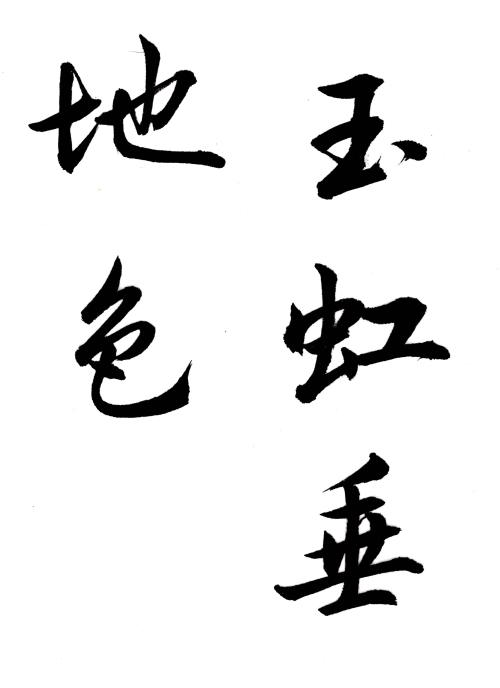 玉虹垂
地色